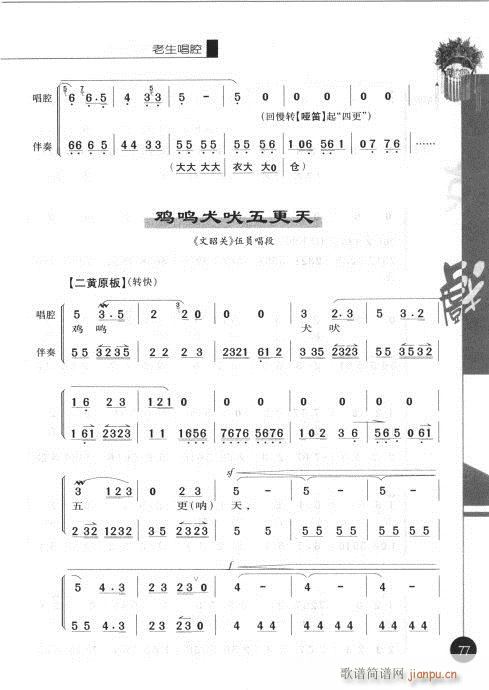 老生唱腔
唱腔 6 6·5 4 3 3 5 - 5 0 0 0 0 0
(回慢转【哑笛】起“四更”)
伴奏 6 6 6 5 4 4 3 3 5 5 5 5 5 5 5 6 1 0 6 5 6 1 0 7 7 6 ……
(大大 大大 衣大 大0 仓)
鸡鸣犬吠五更天
《文昭关》伍员唱段
【二黄原板】(转快)
唱腔 5 3·5 2 2 0 0 0 3 2·3 5 3·2
鸡 鸣 犬 吠
伴奏 5 5 3 2 3 5 2 2 2 3 2 3 2 1 6 1 2 3 3 5 2 3 2 3 5 5 3 5 3 2
1 6 2 3 1 2 1 0 0 0 0 0 0 0
1 6 1 2 3 2 3 1 1 1 6 5 6 7 6 7 6 5 6 7 6 1 0 2 3 6 5 6 5 0 6 1
sf
3 1 2 3 0 2 3 5 - 5 - 5 -
五 更(呐) 天,
2 3 2 1 2 3 2 3 5 2 3 2 3 5 5 5 5 5 5 5 5 5 5 5 5
f
5 4·3 2 3 2 3 0 4 - 4 - 4 -
5 5 4·3 2 3 0 2 3 0 4 4 4 4 4 4 4 4 4 4 4 4
77
歌谱简谱网
jianpu.cn